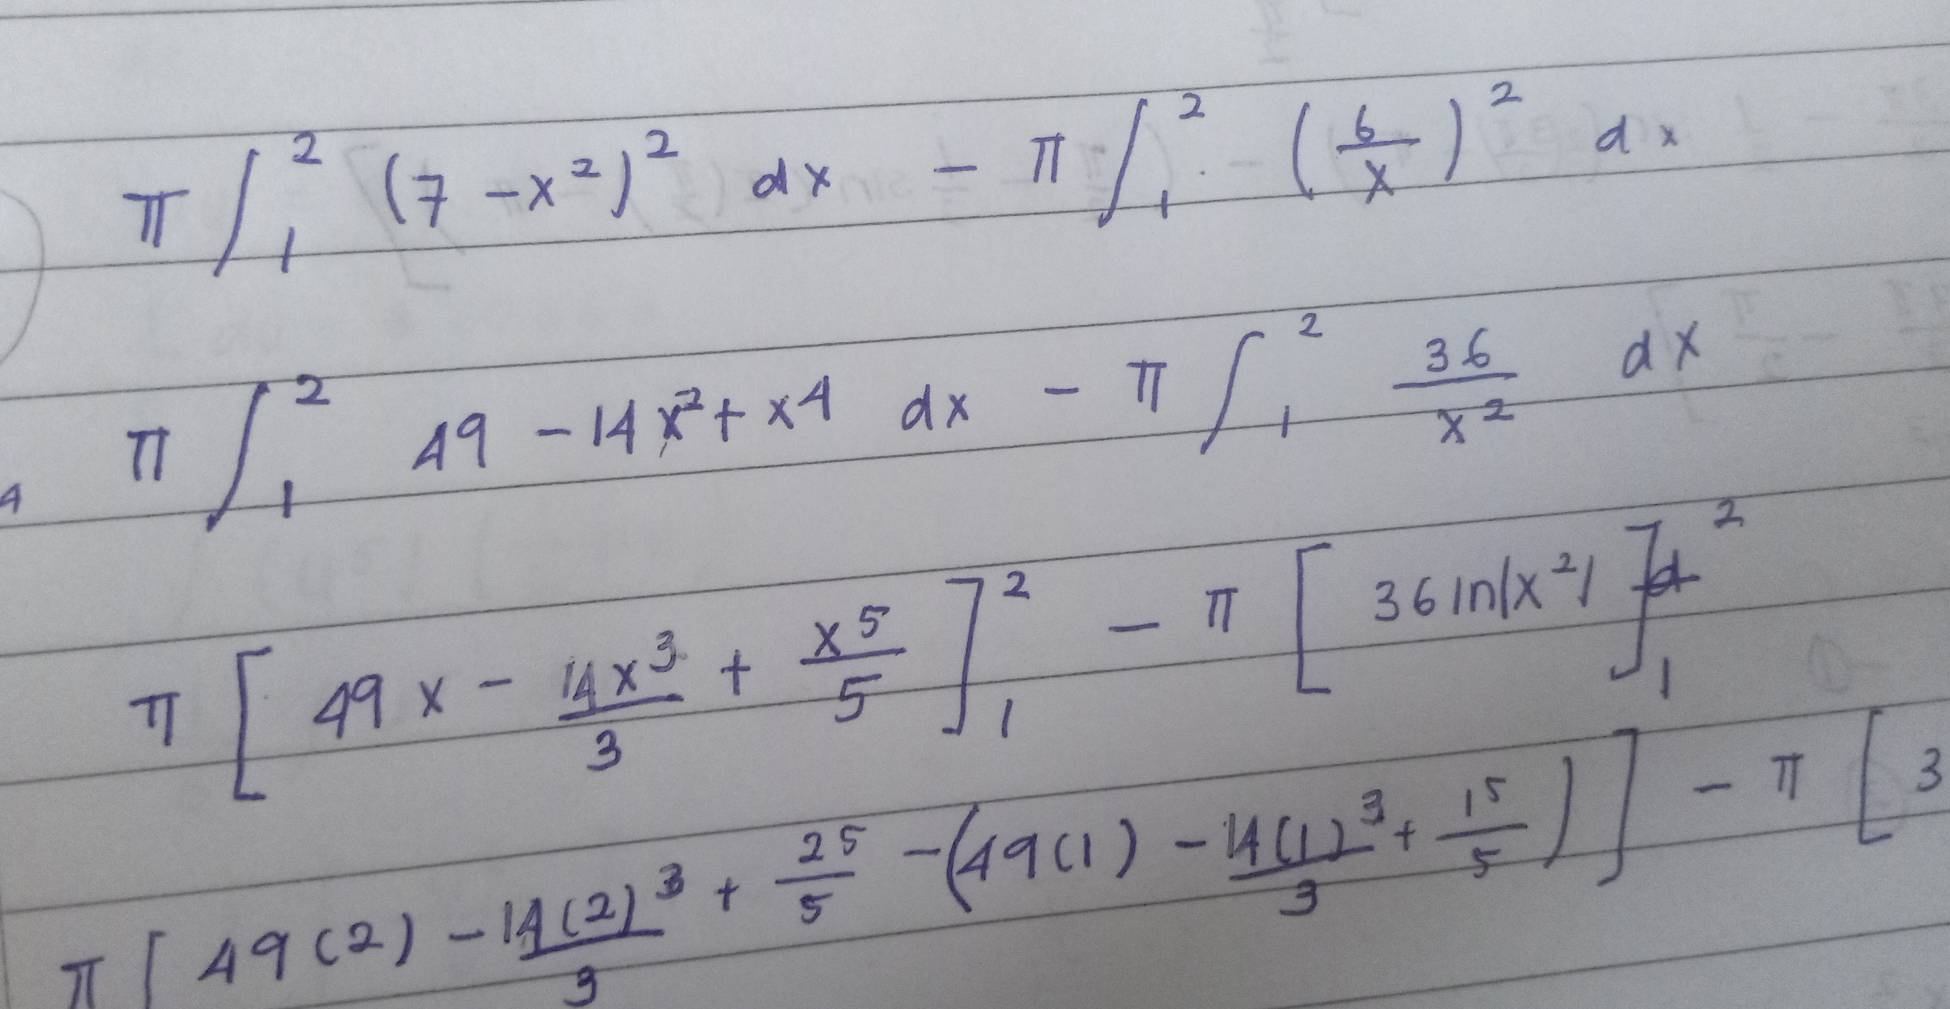 π ∫₁² (7 - x²)² dx - π ∫₁² - (6/x)² dx
π ∫₁² 49 - 14x² + x4 dx - π ∫₁² 36/x² dx
4
π [ 49x - 14x³/3 + x⁵/5 ]₁² - π [ 36 ln|x²| ]₁²
π [ 49(2) - 14(2)³/3 + 2⁵/5 - (49(1) - 14(1)³/3 + 1⁵/5 ) ] - π [ 3